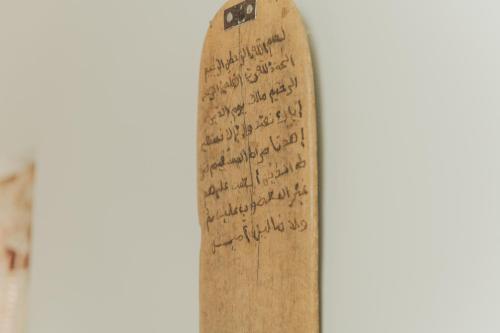 بسم الله الرحمن الرحيم
الحمد لله رب العلمين الرحمن
الرحيم ملك يوم الدين
إياك نعبد وإياك نستعين
إهدنا صراط المستقيم
صراط الذين أنعمت عليهم
غير المغضوب عليهم
ولا الضالين آمين